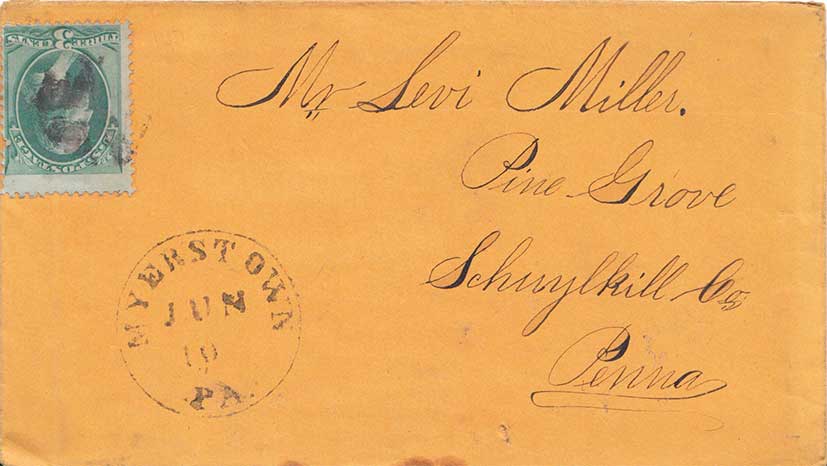 Mr Levi Miller.
Pine Grove
Schuylkill Co
Penna
MYERSTOWN
JUN
19
PA.
3